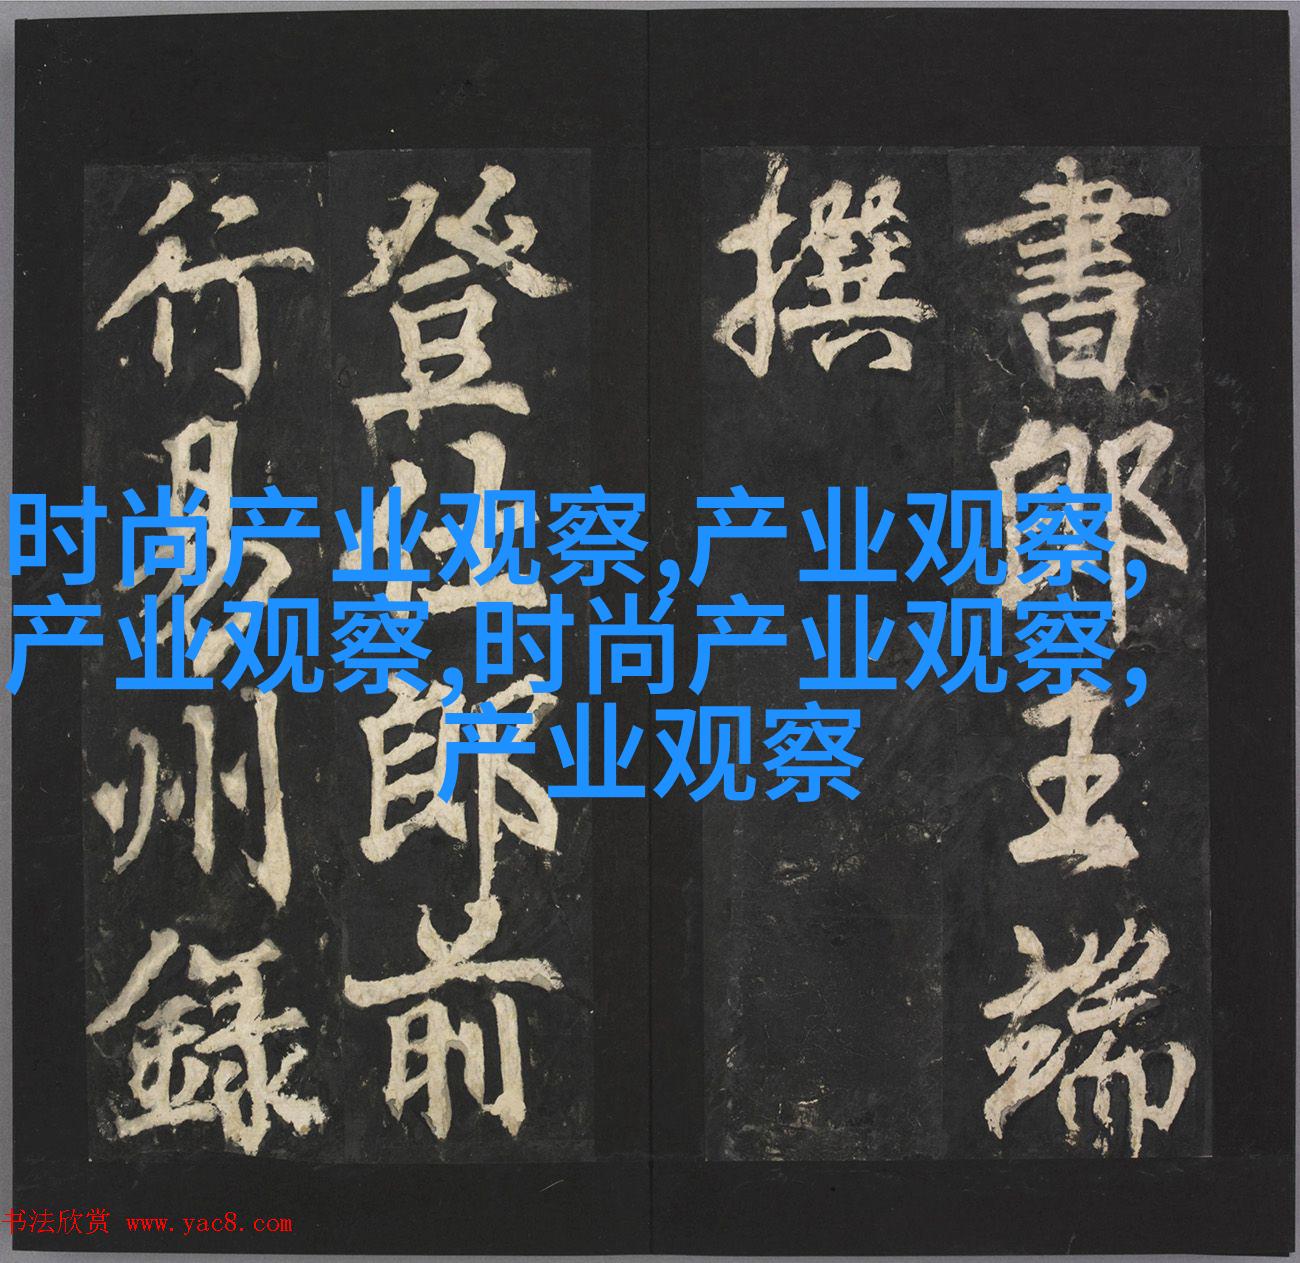 書郎王端
撰
登仕郎前
行易州錄
时尚产业观察,产业观察,
产业观察,时尚产业观察,
产业观察
书法欣赏 www.yac8.com